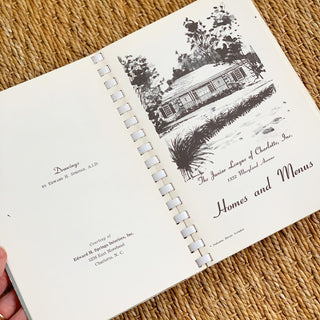 Drawings
BY EDWARD H. SPRINGS, A.I.D.
Courtesy of
Edward H. Springs Interiors, Inc.
1236 East Morehead
Charlotte, N. C.
The Junior League of Charlotte, Inc.
1332 Maryland Avenue
Homes and Menus